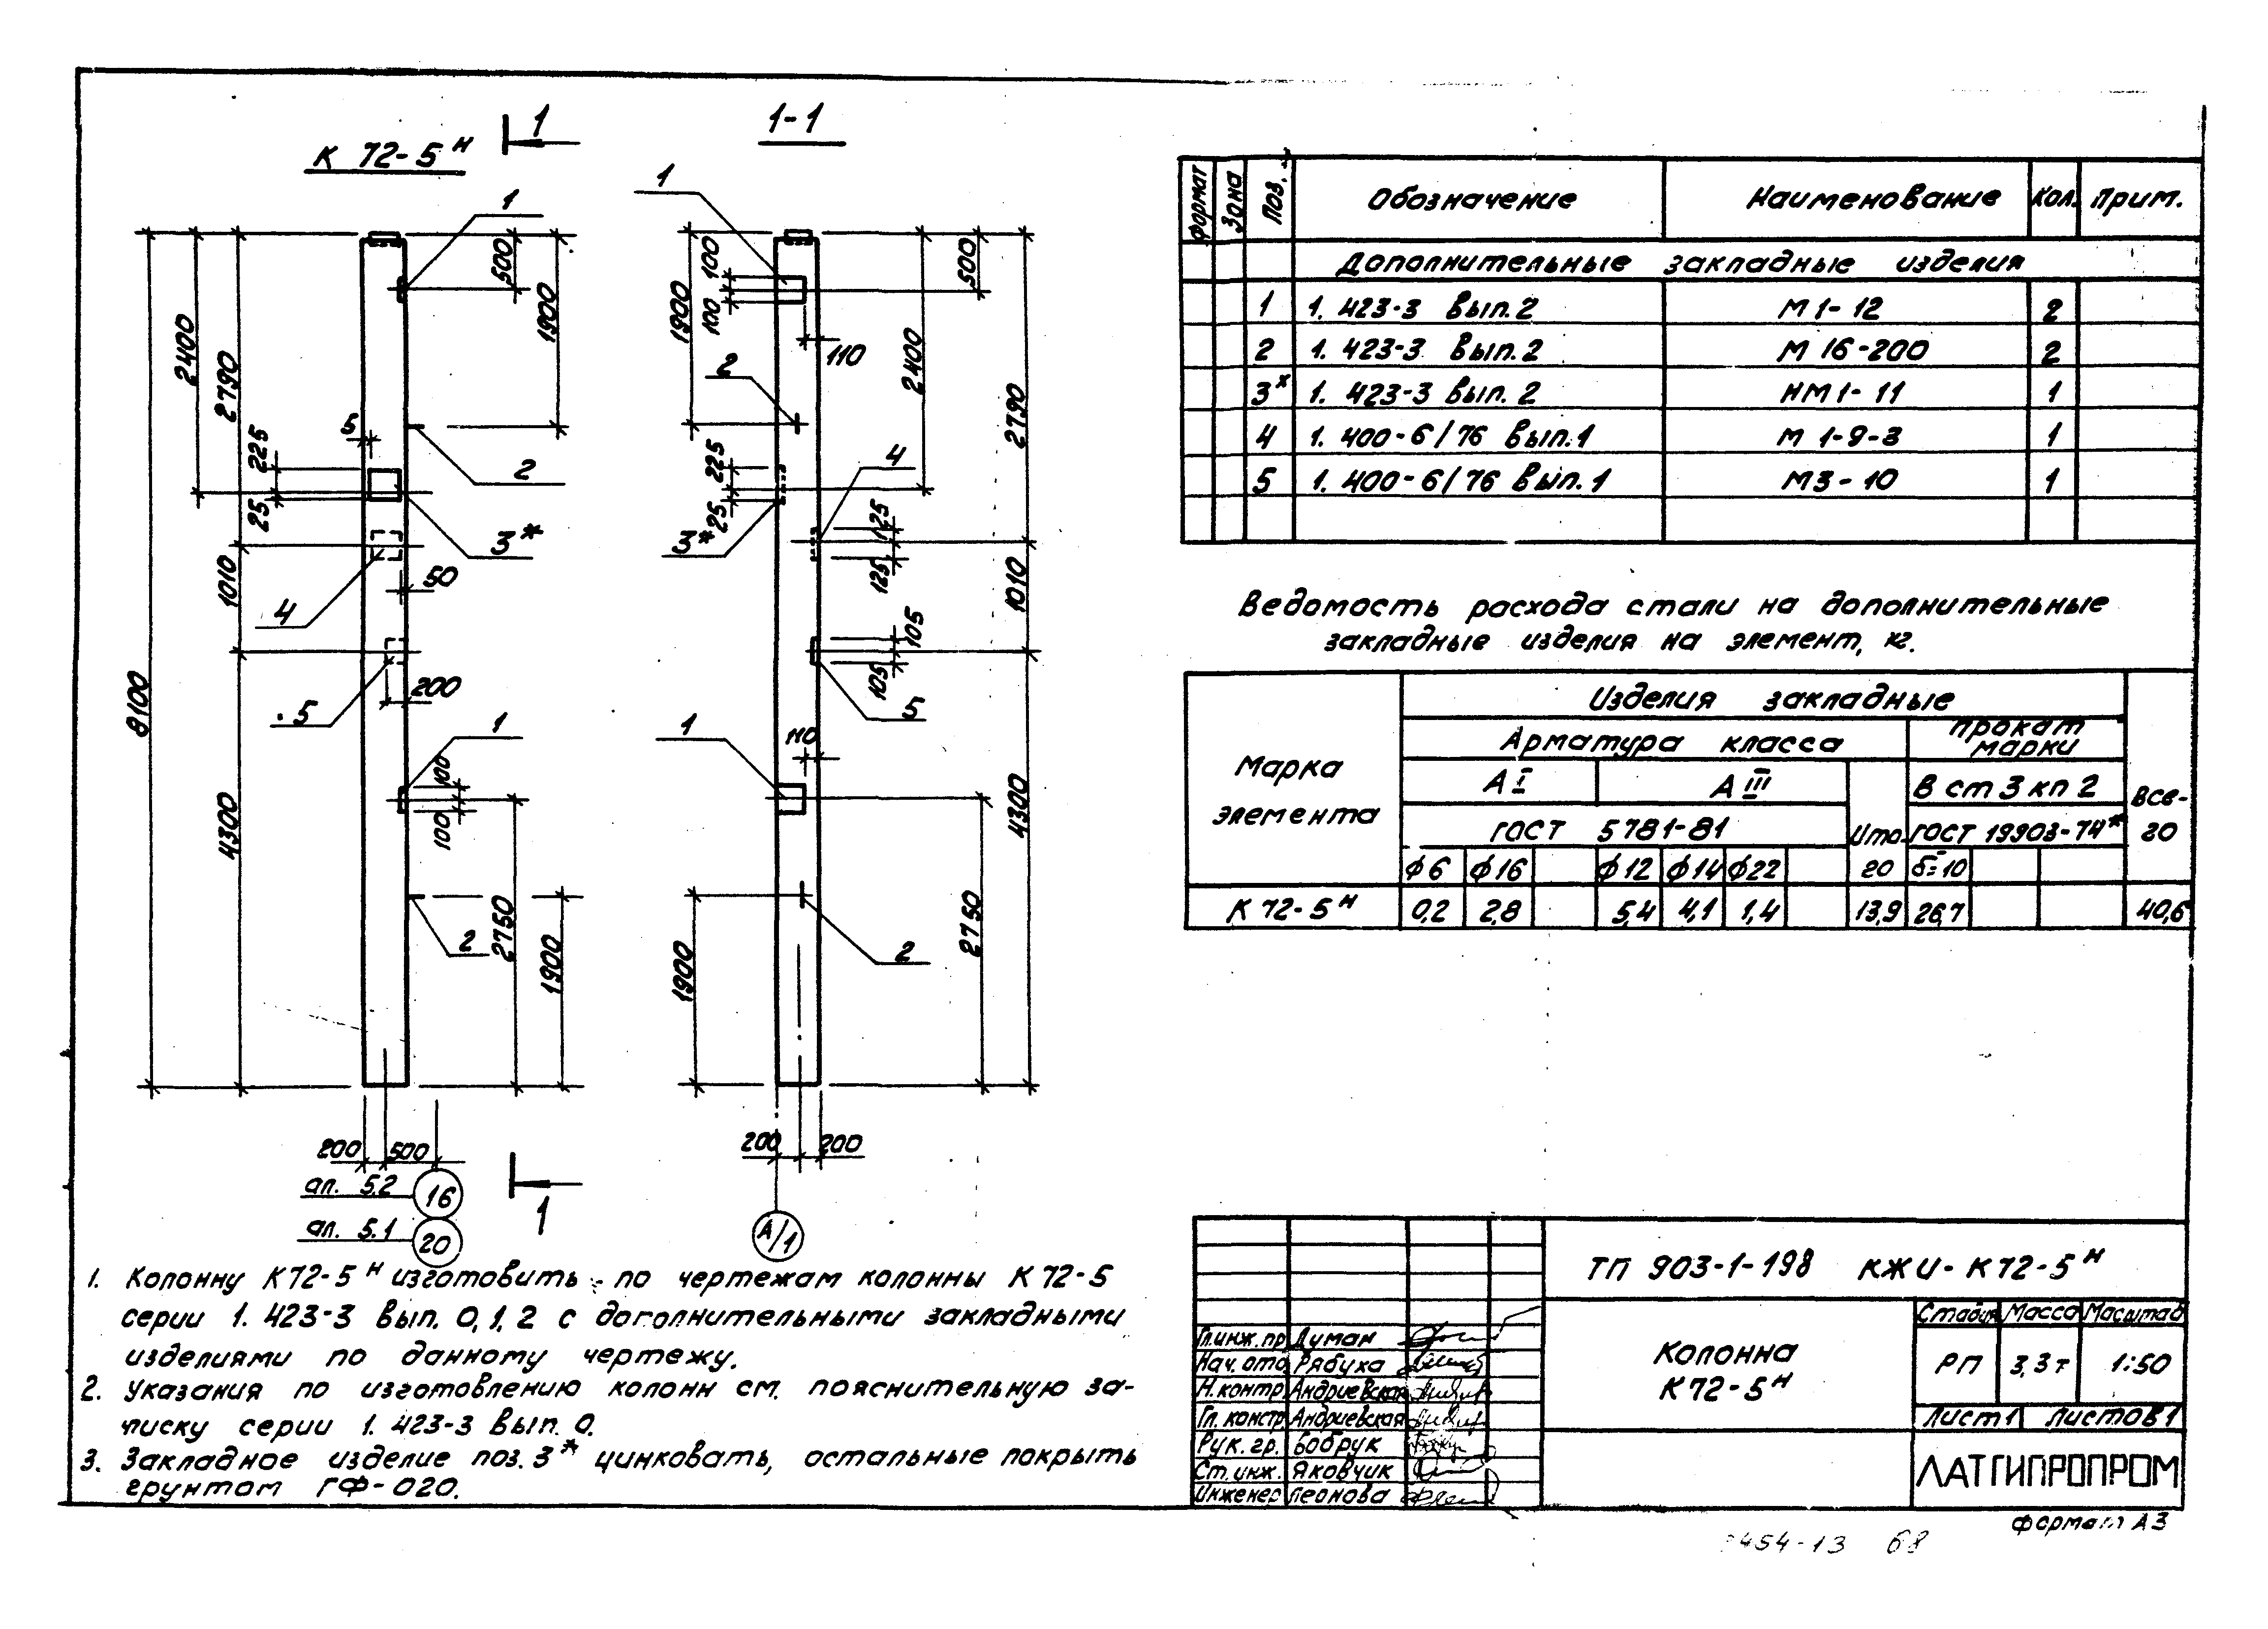 К 72-5ᴴ
1
1-1
1
500
1900
2400
2790
5
225
25
2
3*
4
1010
50
5
200
8100
1
100
100
4300
2
2750
1900
200
500
ал. 5.2
16
ал. 5.1
20
1
1
1900
100
100
500
110
2
2400
2790
225
25
3*
4
125
125
1010
105
105
5
1
110
4300
2
2750
1900
200
200
А/1
1. Колонну К72-5ᴴ изготовить по чертежам колонны К 72-5
серии 1. 423-3 вып. 0,1,2 с дополнительными закладными
изделиями по данному чертежу.
2. Указания по изготовлению колонн см. пояснительную за-
писку серии 1. 423-3 вып. 0.
3. Закладное изделие поз. 3* цинковать, остальные покрыть
грунтом ГФ-020.
формат Зона Поз. Обозначение Наименование Кол. Прим.
Дополнительные закладные изделия
1 1. 423-3 вып. 2 М 1-12 2
2 1. 423-3 вып. 2 М 16-200 2
3ˣ 1. 423-3 вып. 2 НМ 1-11 1
4 1. 400-6/76 вып. 1 М 1-9-3 1
5 1. 400-6/76 вып. 1 М3-10 1
Ведомость расхода стали на дополнительные
закладные изделия на элемент, кг.
Марка элемента
Изделия закладные
Все-
го
Арматура класса
прокат марки
А I А III
В ст 3 кп 2
ГОСТ 5781-81
Ито-
го
ГОСТ 19903-74*
ф6 ф16 ф12 ф14 ф22 б=10
К 72-5ᴴ 0,2 2,8 5,4 4,1 1,4 13,9 26,7 40,6
ТП 903-1-198 КЖИ-К72-5ᴴ
Колонна
К 72-5ᴴ
Стадия Масса Масштаб
РП 3,3т 1:50
Лист 1 Листов 1
ЛАТГИПРОПРОМ
Гл.инж.пр Думан
Нач. отд Рябуха
Н.контр Андриевская
Гл. констр Андриевская
Рук. гр. Бобрук
Ст. инж. Яковчик
Инженер Леонова
формат А3
454-13 68